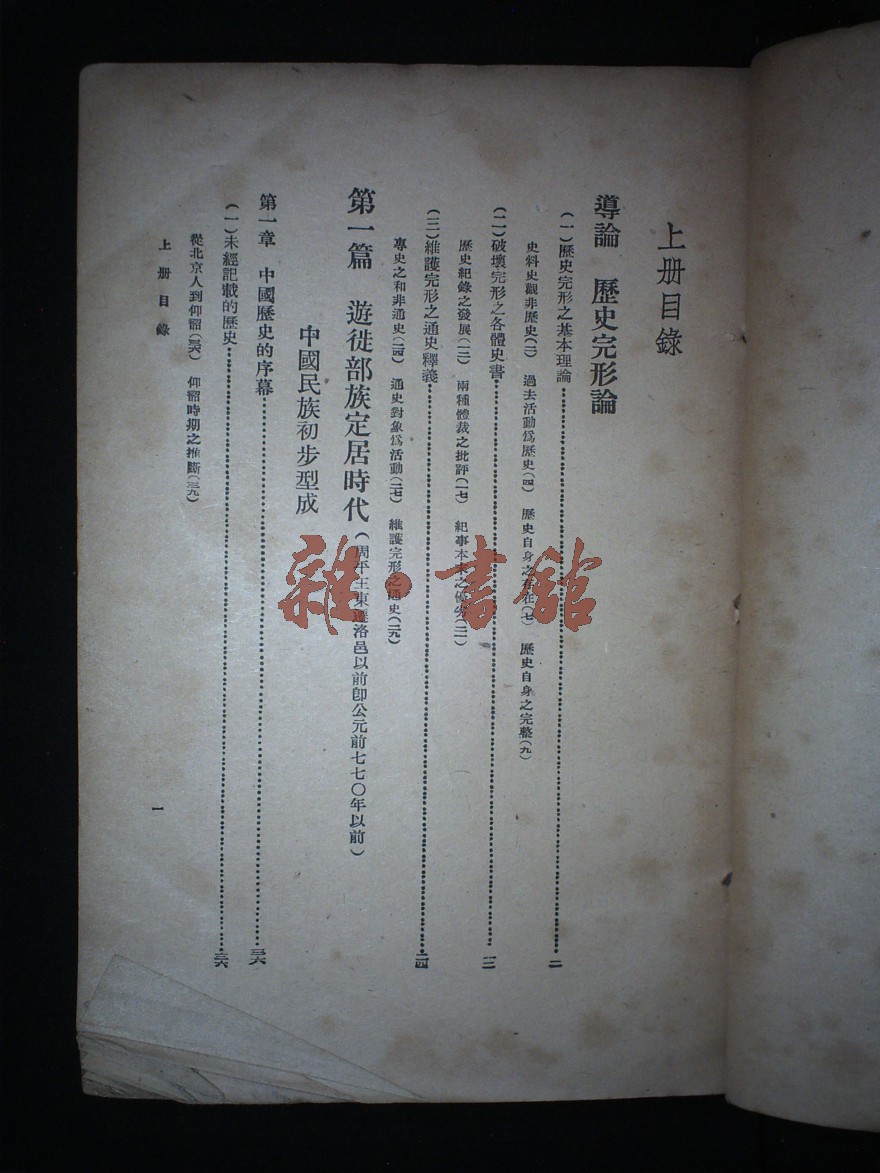 上册目錄
導論　歷史完形論
（一）歷史完形之基本理論……二
史料史觀非歷史（二）　過去活動爲歷史（四）　歷史自身之存在（七）　歷史自身之完整（九）
（二）破壞完形之各體史書……一二
歷史紀錄之發展（一二）　兩種體裁之批評（一七）　紀事本末之優劣（二一）
（三）維護完形之通史釋義……二四
專史之和非通史（二四）　通史對象爲活動（二七）　維護完形之通史（二九）
第一篇　遊徙部族定居時代（周平王東遷洛邑以前卽公元前七七〇年以前）
中國民族初步型成
第一章　中國歷史的序幕……三六
（一）未經記載的歷史……三六
從北京人到仰韶（三六）　仰韶時期之推斷（三九）
上册目錄
一
雜·書館